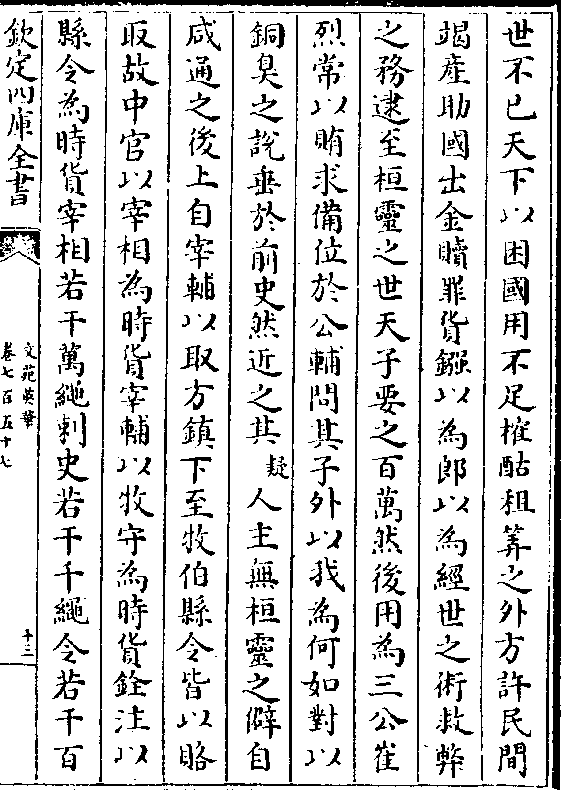 世不已天下以困國用不足榷酤租筭之外方許民間
竭產助國出金贖罪貨鏹以為郎以為經世之術救弊
之務逮至桓靈之世天子要之百萬然後用為三公崔
烈常以賄求備位於公輔問其子外以我為何如對以
銅臭之說垂於前史然近之其疑人主無桓靈之僻自
咸通之後上自宰輔以取方鎮下至牧伯縣令皆以賂
取故中官以宰相為時貨宰輔以牧守為時貨銓注以
縣令為時貨宰相若干萬繩刺史若干千繩令若干百
欽定四庫全書
文苑英華
卷七百五十七
十三